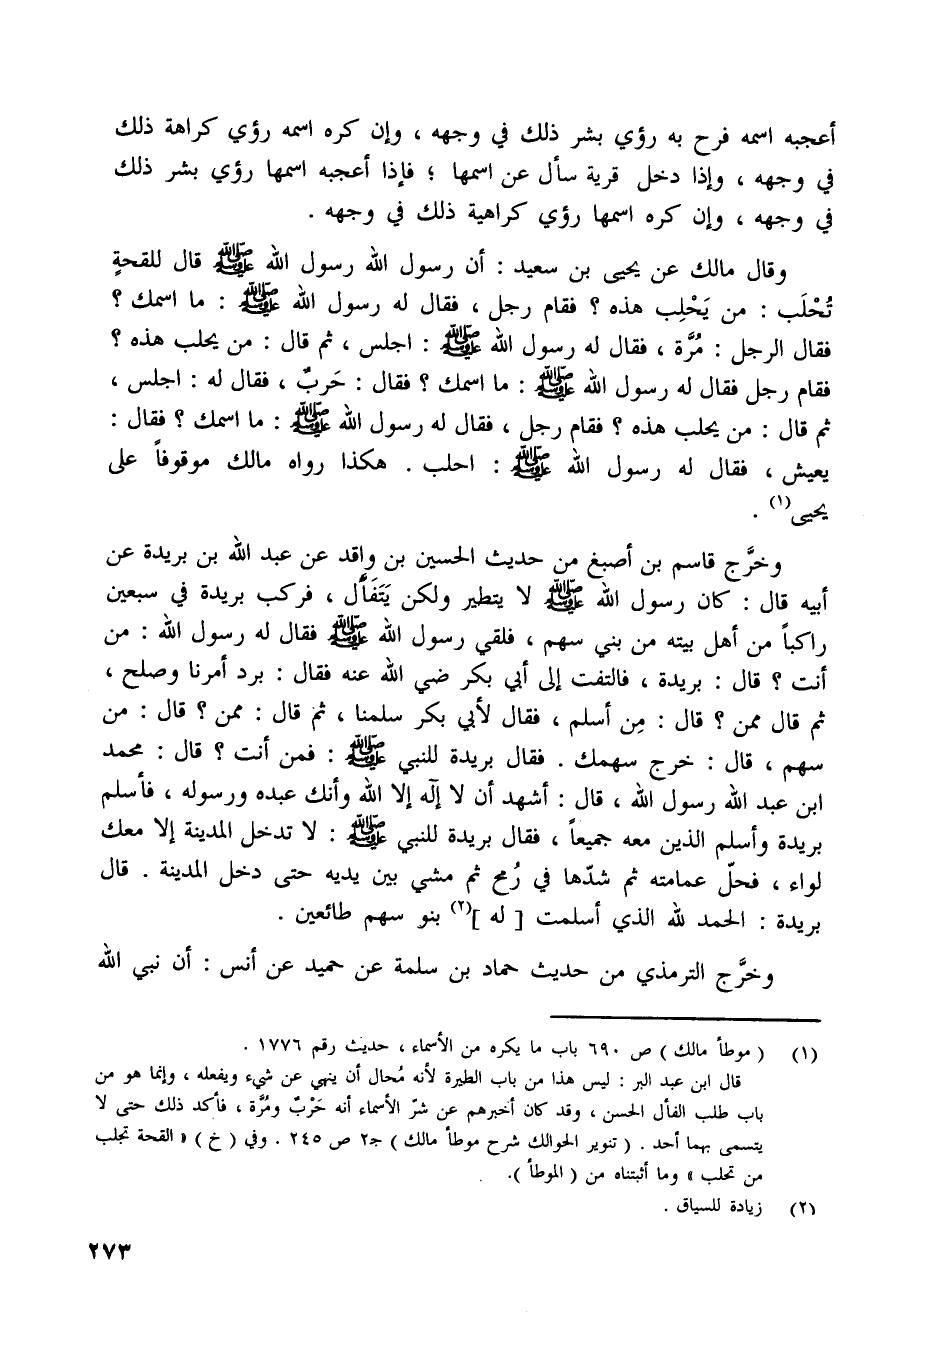 أعجبه اسمه فرح به رؤي بشر ذلك في وجهه ، وإن كره اسمه رؤي كراهة ذلك
في وجهه ، وإذا دخل قرية سأل عن اسمها ؛ فإذا أعجبه اسمها رؤي بشر ذلك
في وجهه ، وإن كره اسمها رؤي كراهية ذلك في وجهه .
وقال مالك عن يحيى بن سعيد : أن رسول الله رسول الله ﷺ قال للقحةٍ
تُحْلَب : من يَحْلِب هذه ؟ فقام رجل ، فقال له رسول الله ﷺ : ما اسمك ؟
فقال الرجل : مُرَّة ، فقال له رسول الله ﷺ : اجلس ، ثم قال : من يحلب هذه ؟
فقام رجل فقال له رسول الله ﷺ : ما اسمك ؟ فقال : حَربٌ ، فقال له : اجلس ،
ثم قال : من يحلب هذه ؟ فقام رجل ، فقال له رسول الله ﷺ : ما اسمك ؟ فقال :
يعيش ، فقال له رسول الله ﷺ : احلب . هكذا رواه مالك موقوفاً على
يحيى(١) .
وخرَّج قاسم بن أصبغ من حديث الحسين بن واقد عن عبد الله بن بريدة عن
أبيه قال : كان رسول الله ﷺ لا يتطير ولكن يَتَفَأَّل ، فركب بريدة في سبعين
راكباً من أهل بيته من بني سهم ، فلقي رسول الله ﷺ فقال له رسول الله : من
أنت ؟ قال : بريدة ، فالتفت إلى أبي بكر ضي الله عنه فقال : برد أمرنا وصلح ،
ثم قال ممن ؟ قال : مِن أسلم ، فقال لأبي بكر سلمنا ، ثم قال : ممن ؟ قال : من
سهم ، قال : خرج سهمك . فقال بريدة للنبي ﷺ : فمن أنت ؟ قال : محمد
ابن عبد الله رسول الله ، قال : أشهد أن لا إلٓه إلا الله وأنك عبده ورسوله ، فأسلم
بريدة وأسلم الذين معه جميعاً ، فقال بريدة للنبي ﷺ : لا تدخل المدينة إلا معك
لواء ، فحلّ عمامته ثم شدّها في رُمح ثم مشي بين يديه حتى دخل المدينة . قال
بريدة : الحمد لله الذي أسلمت [ له ](٢) بنو سهم طائعين .
وخرَّج الترمذي من حديث حماد بن سلمة عن حميد عن أنس : أن نبي الله
(١) ( موطأ مالك ) ص ٦٩٠ باب ما يكره من الأسماء ، حديث رقم ١٧٧٦ .
قال ابن عبد البر : ليس هذا من باب الطيرة لأنه مُحال أن ينهي عن شيء ويفعله ، وإنما هو من
باب طلب الفأل الحسن ، وقد كان أخبرهم عن شرّ الأسماء أنه حَرْبٌ ومُرَّة ، فأكد ذلك حتى لا
يتسمى بهما أحد . ( تنوير الحوالك شرح موطأ مالك ) جـ٢ ص ٢٤٥ . وفي ( خ ) « القحة تجلب
من تحلب » وما أثبتناه من ( الموطأ ).
(٢) زيادة للسياق .
٢٧٣